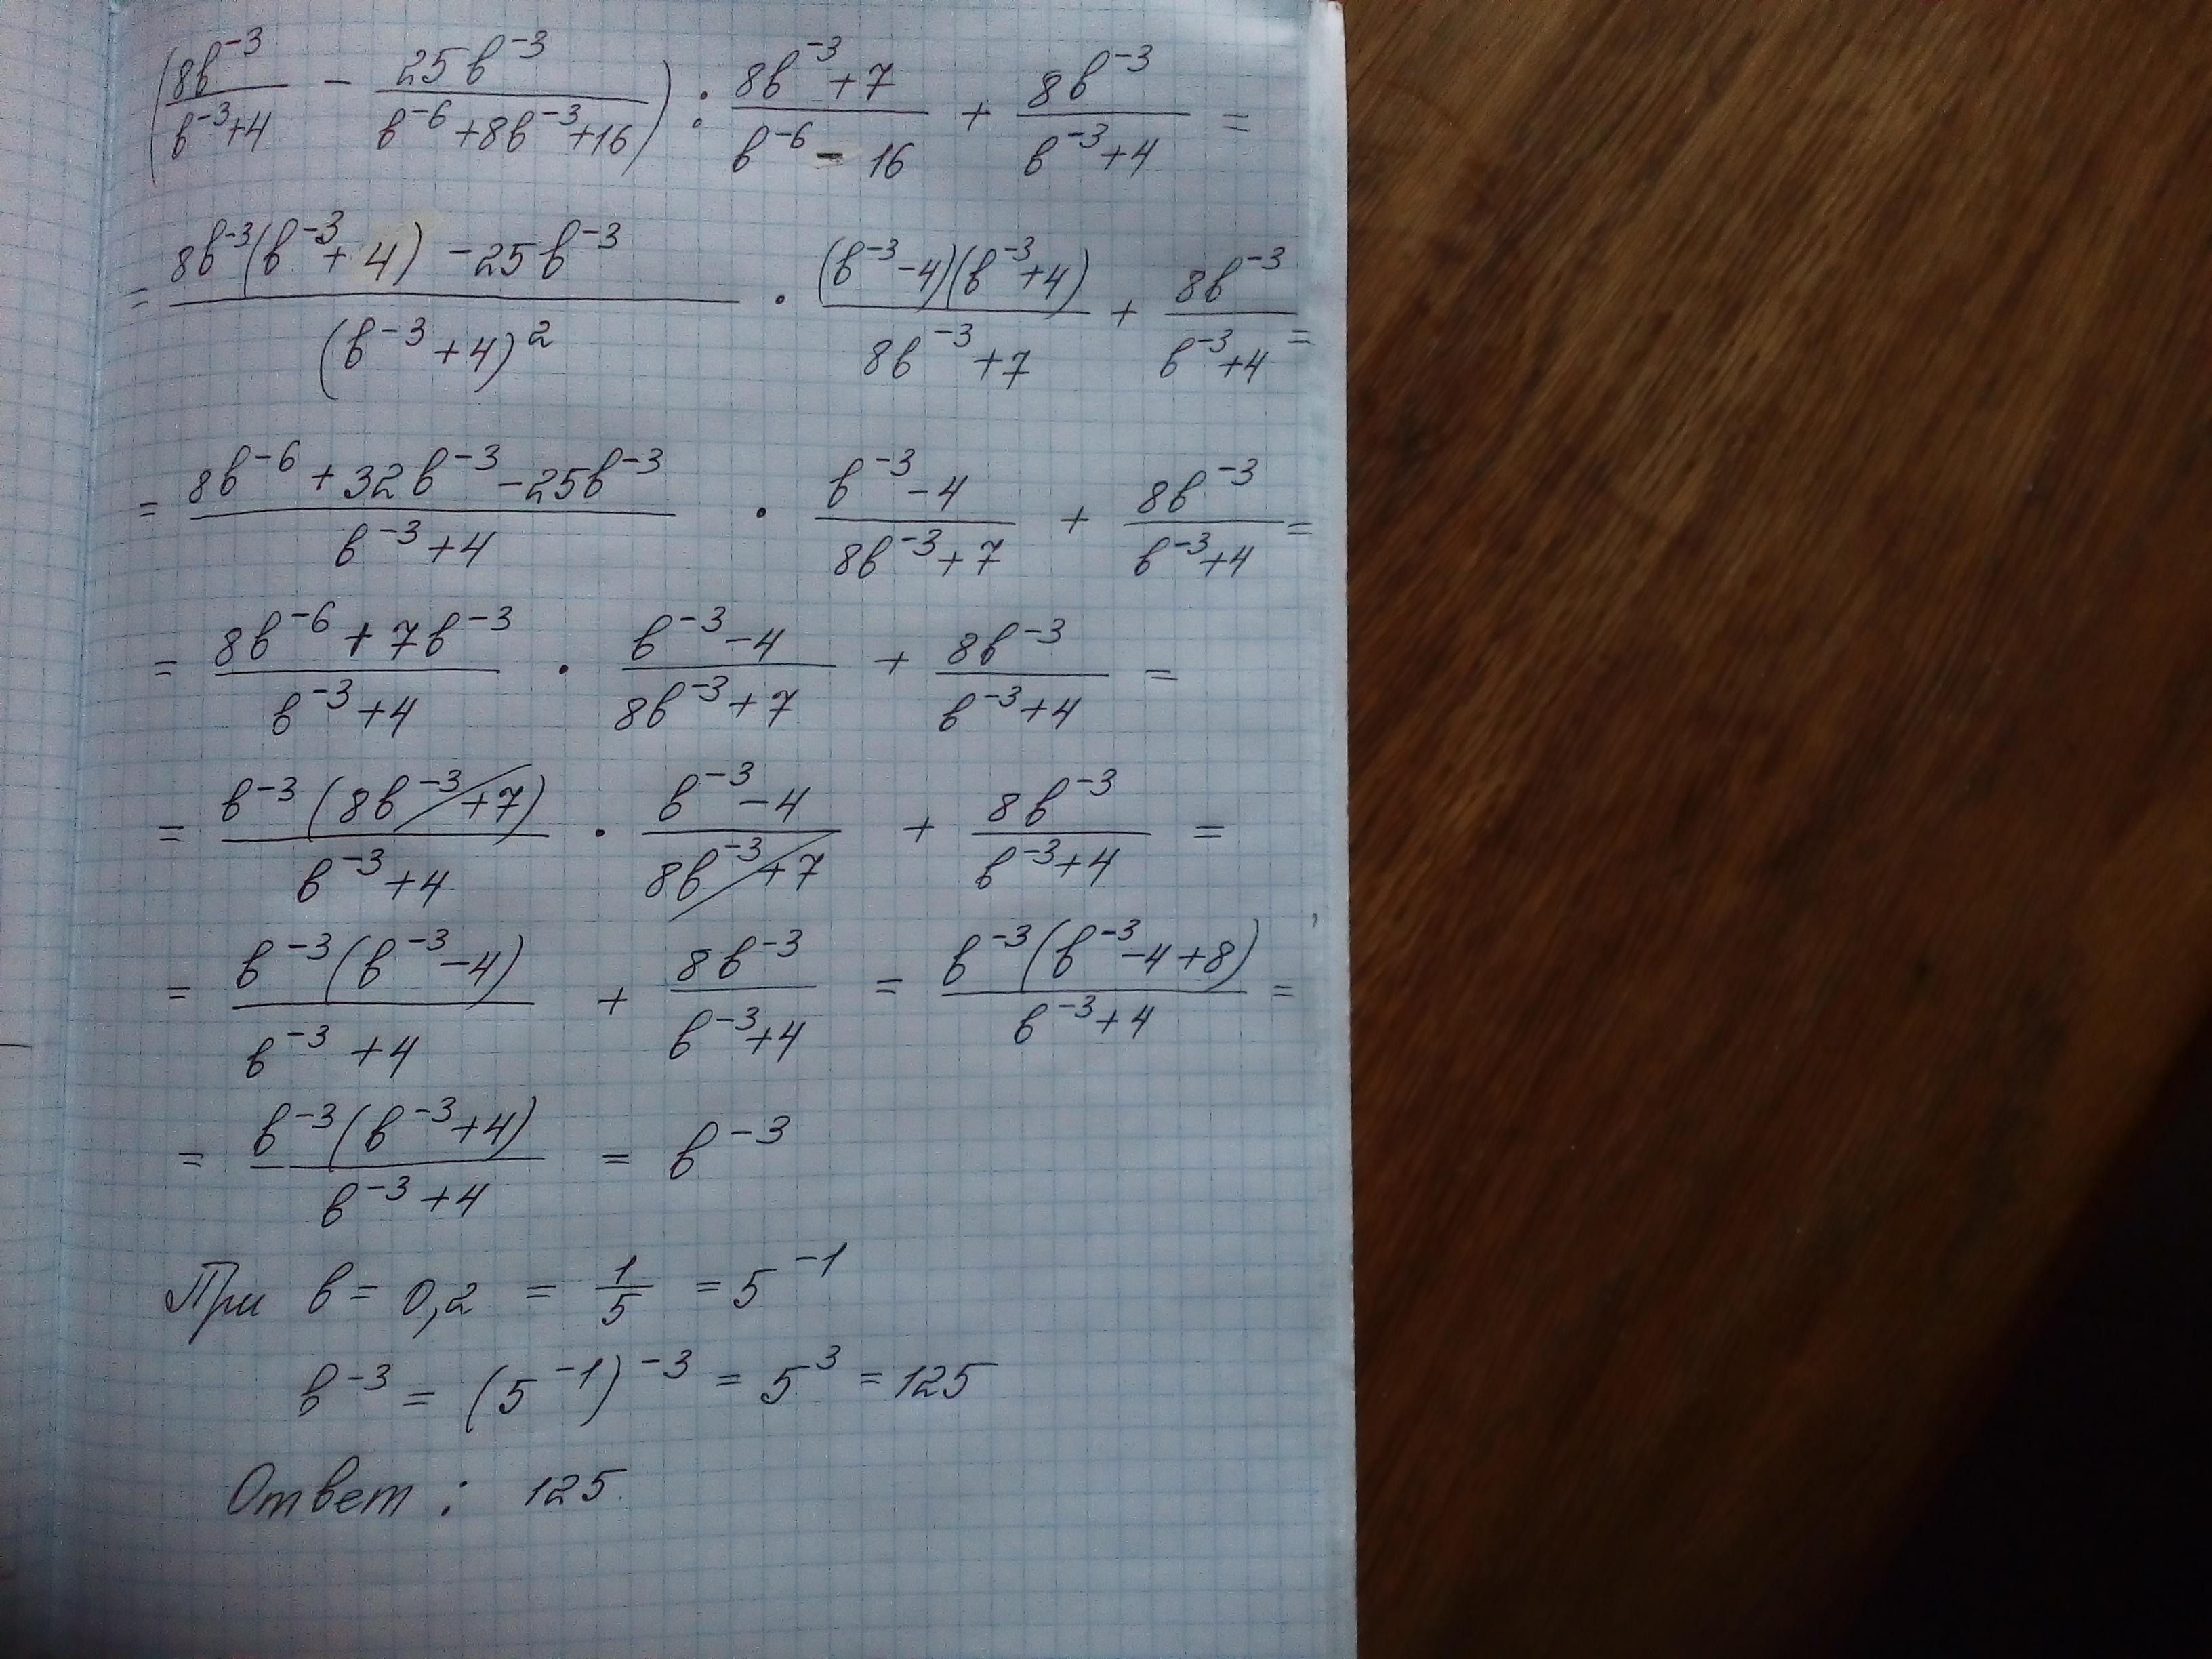 (8b⁻³/(b⁻³+4) − 25b⁻³/(b⁻⁶+8b⁻³+16)) : (8b⁻³+7)/(b⁻⁶−16) + 8b⁻³/(b⁻³+4) =
= (8b⁻³(b⁻³+4) −25b⁻³)/(b⁻³+4)² · (b⁻³−4)(b⁻³+4)/(8b⁻³+7) + 8b⁻³/(b⁻³+4) =
= (8b⁻⁶+32b⁻³−25b⁻³)/(b⁻³+4) · (b⁻³−4)/(8b⁻³+7) + 8b⁻³/(b⁻³+4) =
= (8b⁻⁶+7b⁻³)/(b⁻³+4) · (b⁻³−4)/(8b⁻³+7) + 8b⁻³/(b⁻³+4) =
= b⁻³(8b⁻³+7)/(b⁻³+4) · (b⁻³−4)/(8b⁻³+7) + 8b⁻³/(b⁻³+4) =
= b⁻³(b⁻³−4)/(b⁻³+4) + 8b⁻³/(b⁻³+4) = b⁻³(b⁻³−4+8)/(b⁻³+4) =
= b⁻³(b⁻³+4)/(b⁻³+4) = b⁻³
При b = 0,2 = 1/5 = 5⁻¹
b⁻³ = (5⁻¹)⁻³ = 5³ = 125
Ответ : 125.